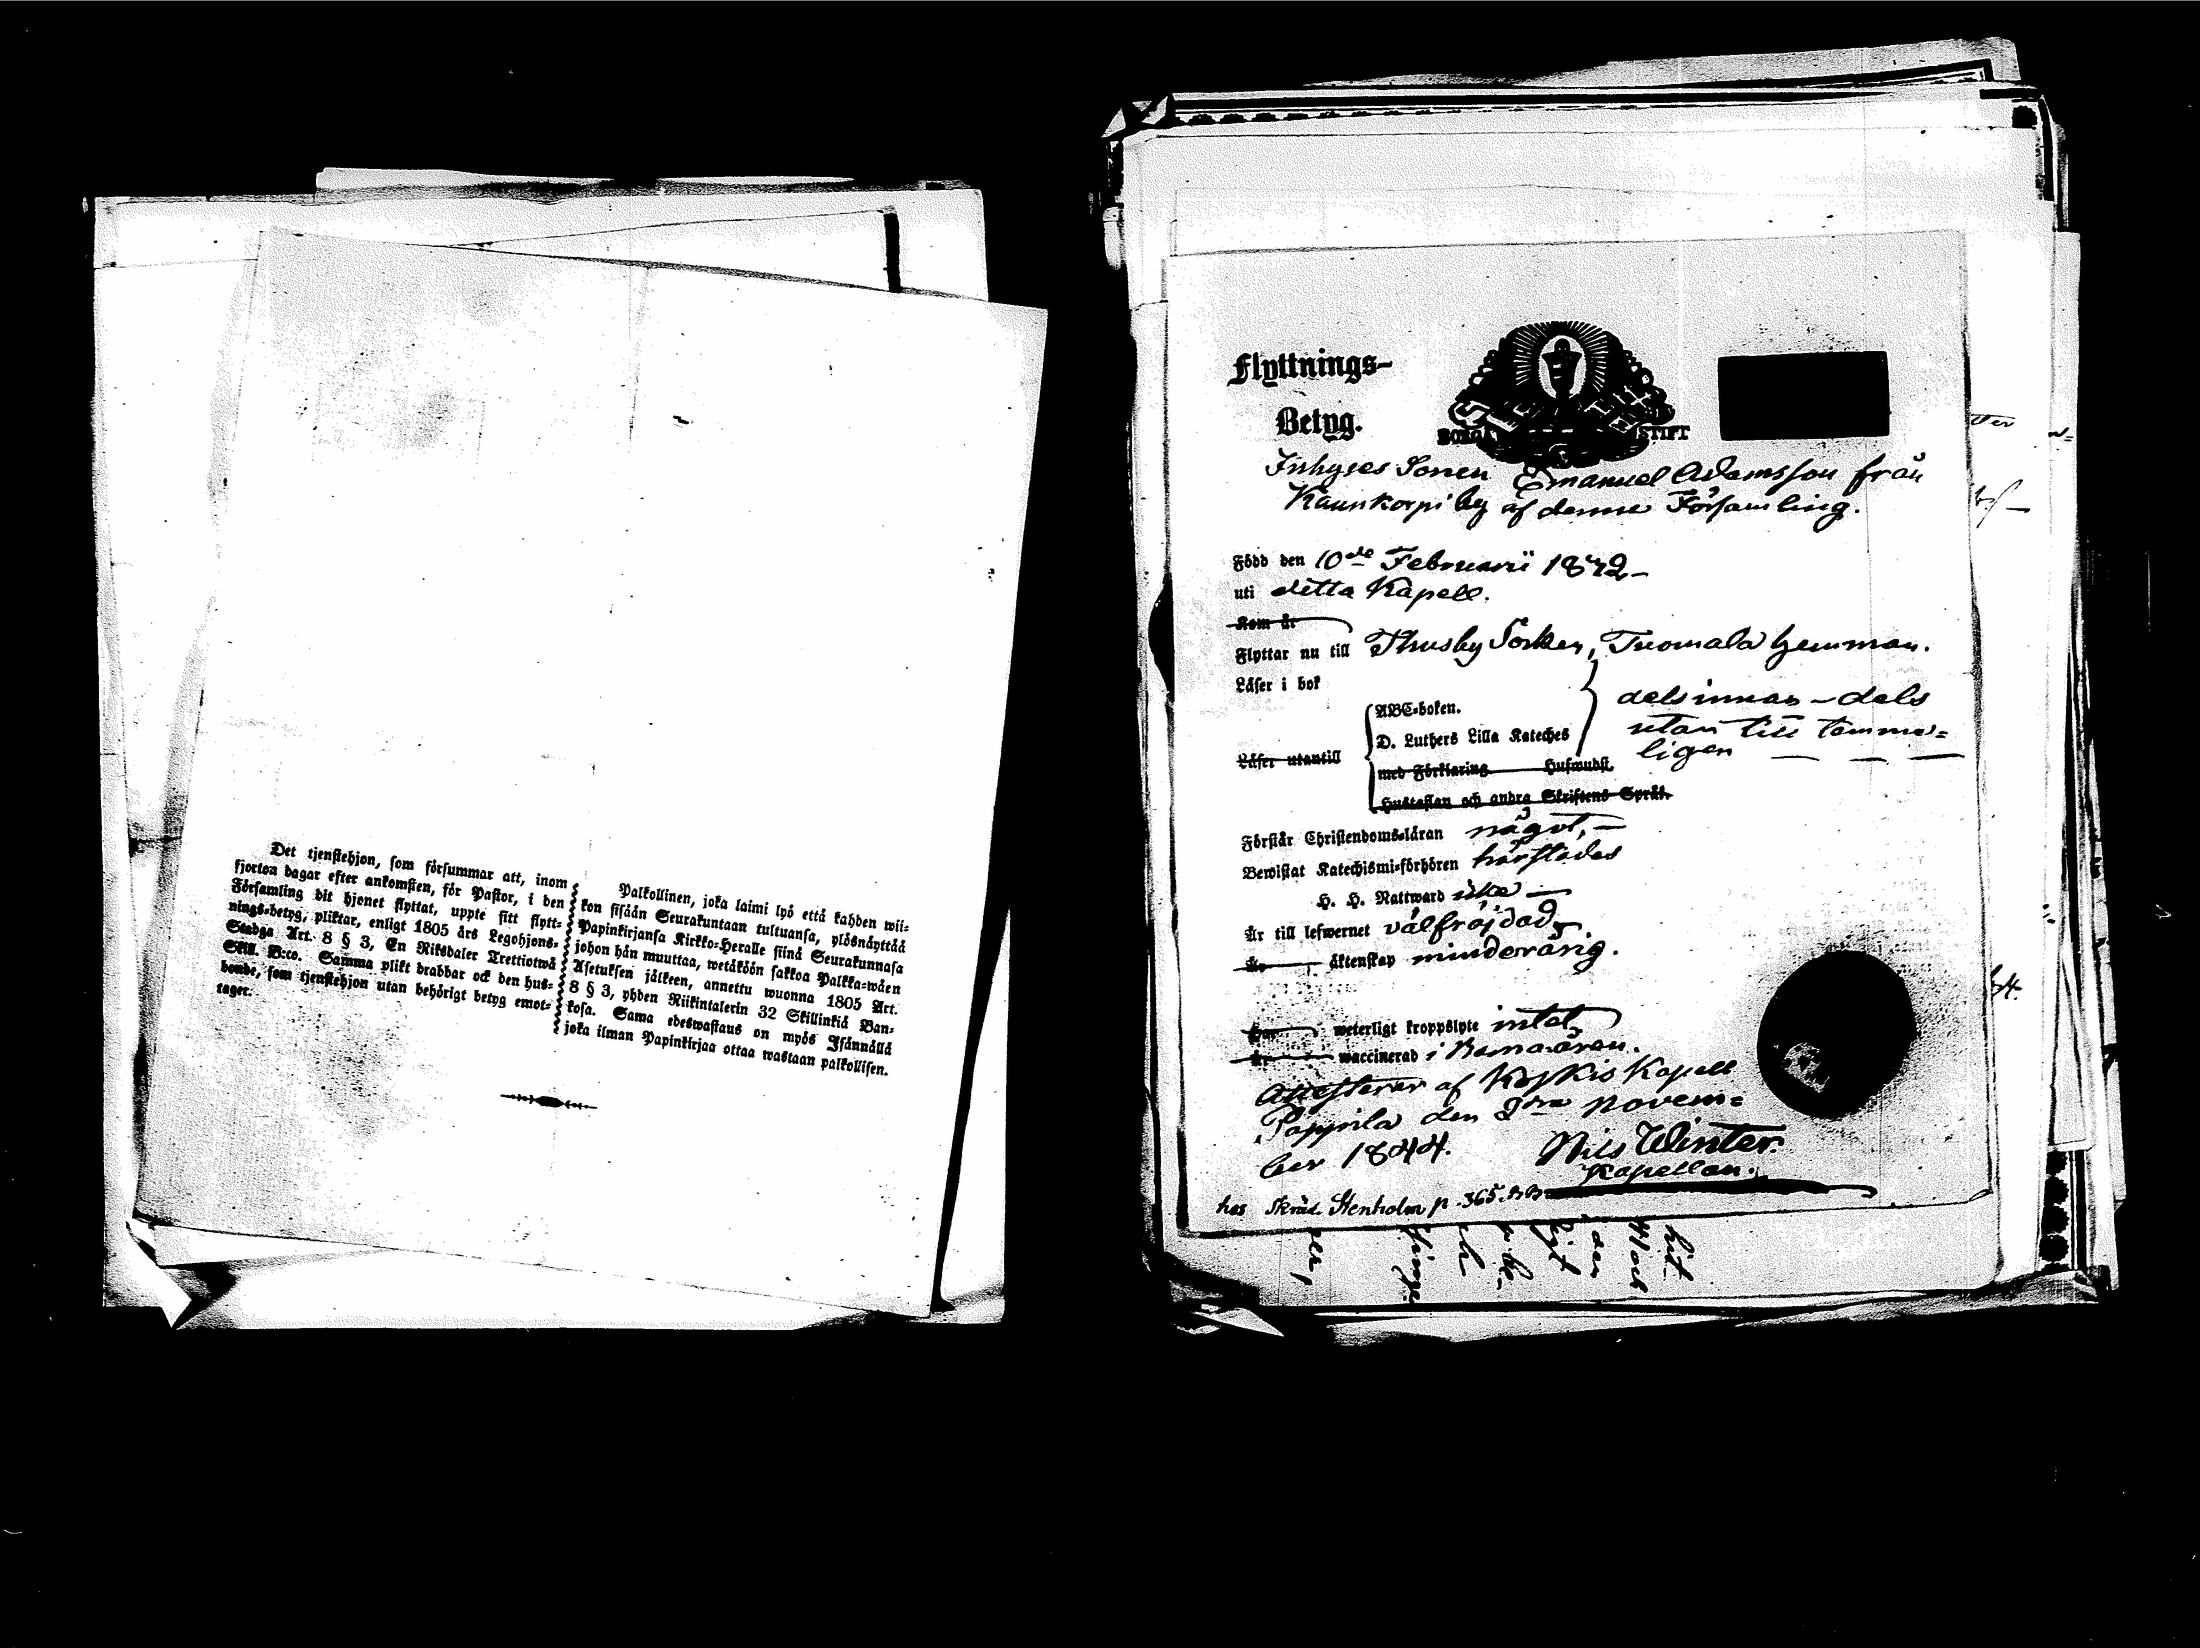 Det tjenstehjon, som försummar att, inom
fjorton dagar efter ankomsten, för Pastor, i den
Församling dit hjonet flyttat, uppte sitt flytt-
nings-betyg, pliktar, enligt 1805 års Legohjons-
Stadga Art. 8 § 3, En Riksdaler Trettiotwå
Skill. B:co. Samma plikt drabbar ock den hus-
bonde, som tjenstehjon utan behörigt betyg emot-
tager.
Palkollinen, joka laimi lyö että kahden wii-
kon sisään Seurakuntaan tultuansa, ylösnäyttää
Papinkirjansa Kirkko-Heralle siinä Seurakunnasa
johon hän muuttaa, wetäköön sakkoa Palkka-wäen
Asetuksen jälkeen, annettu wuonna 1805 Art.
8 § 3, yhden Riikintalerin 32 Skillinkiä Ban-
kosa. Sama edeswastaus on myös Isännällä
joka ilman Papinkirjaa ottaa wastaan palkollisen.
Flyttnings-
Betyg.
BORGÅ STIFT
Inhyses Sonen Emanuel Adamsson från
Kaunkorpi by af denna Församling.
Född den 10de Februarii 1842 -
uti detta Kapell.
Kom år
Flyttar nu till Thusby Socken, Tuomala hemman.
Läser i bok
ABC-boken.
D. Luthers Lilla Kateches
dels innan - dels
utan till tämme-
ligen
Läser utantill
med Förklaring Hufwudst.
Hustaflan och andra Skriftens Språk.
Förstår Christendoms-läran något, -
Bewistat Katechismi-förhören härstädes
H. H. Nattward icke -
Är till lefwernet välfräjdad,
Är äktenskap minderårig.
Har weterligt kroppslyte intet,
Är waccinerad i Barnaåren.
Attesterar af Koskis Kapell
Pappila den 9de Novem-
ber 1844. Nils Winter.
Kapellan.
hos Skräd. Stenholm p. 365.